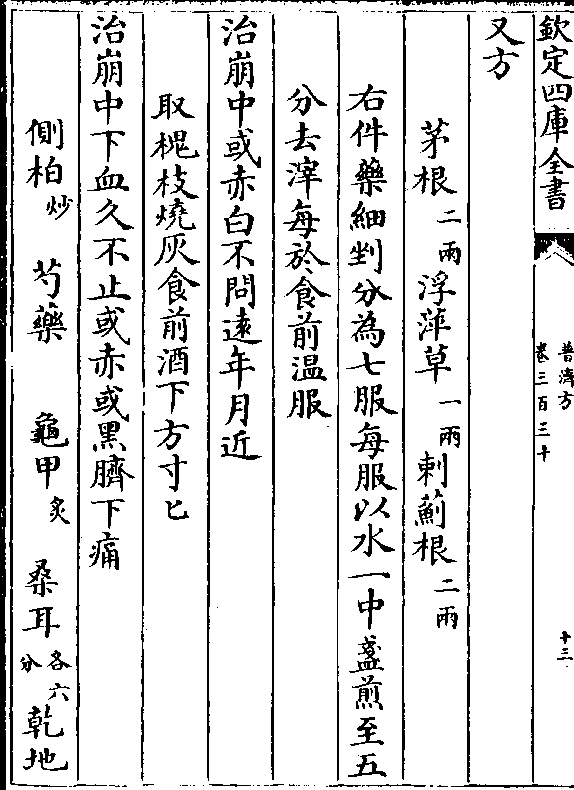 欽定四庫全書
普濟方
卷三百三十
十三
又方
茅根二兩浮萍草一兩刺薊根二兩
右件藥細剉分為七服每服以水一中盞煎至五
分去滓每於食前温服
治崩中或赤白不問遠年月近
取槐枝燒灰食前酒下方寸匕
治崩中下血久不止或赤或黑臍下痛
側柏炒 芍藥 龜甲炙 桑耳各六分 乾地